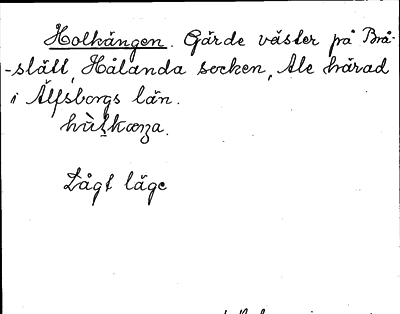 Holkängen. Gärde väster på Brå-
-slätt, Hålanda socken, Ale härad
i Älfsborgs län.
Lågt läge